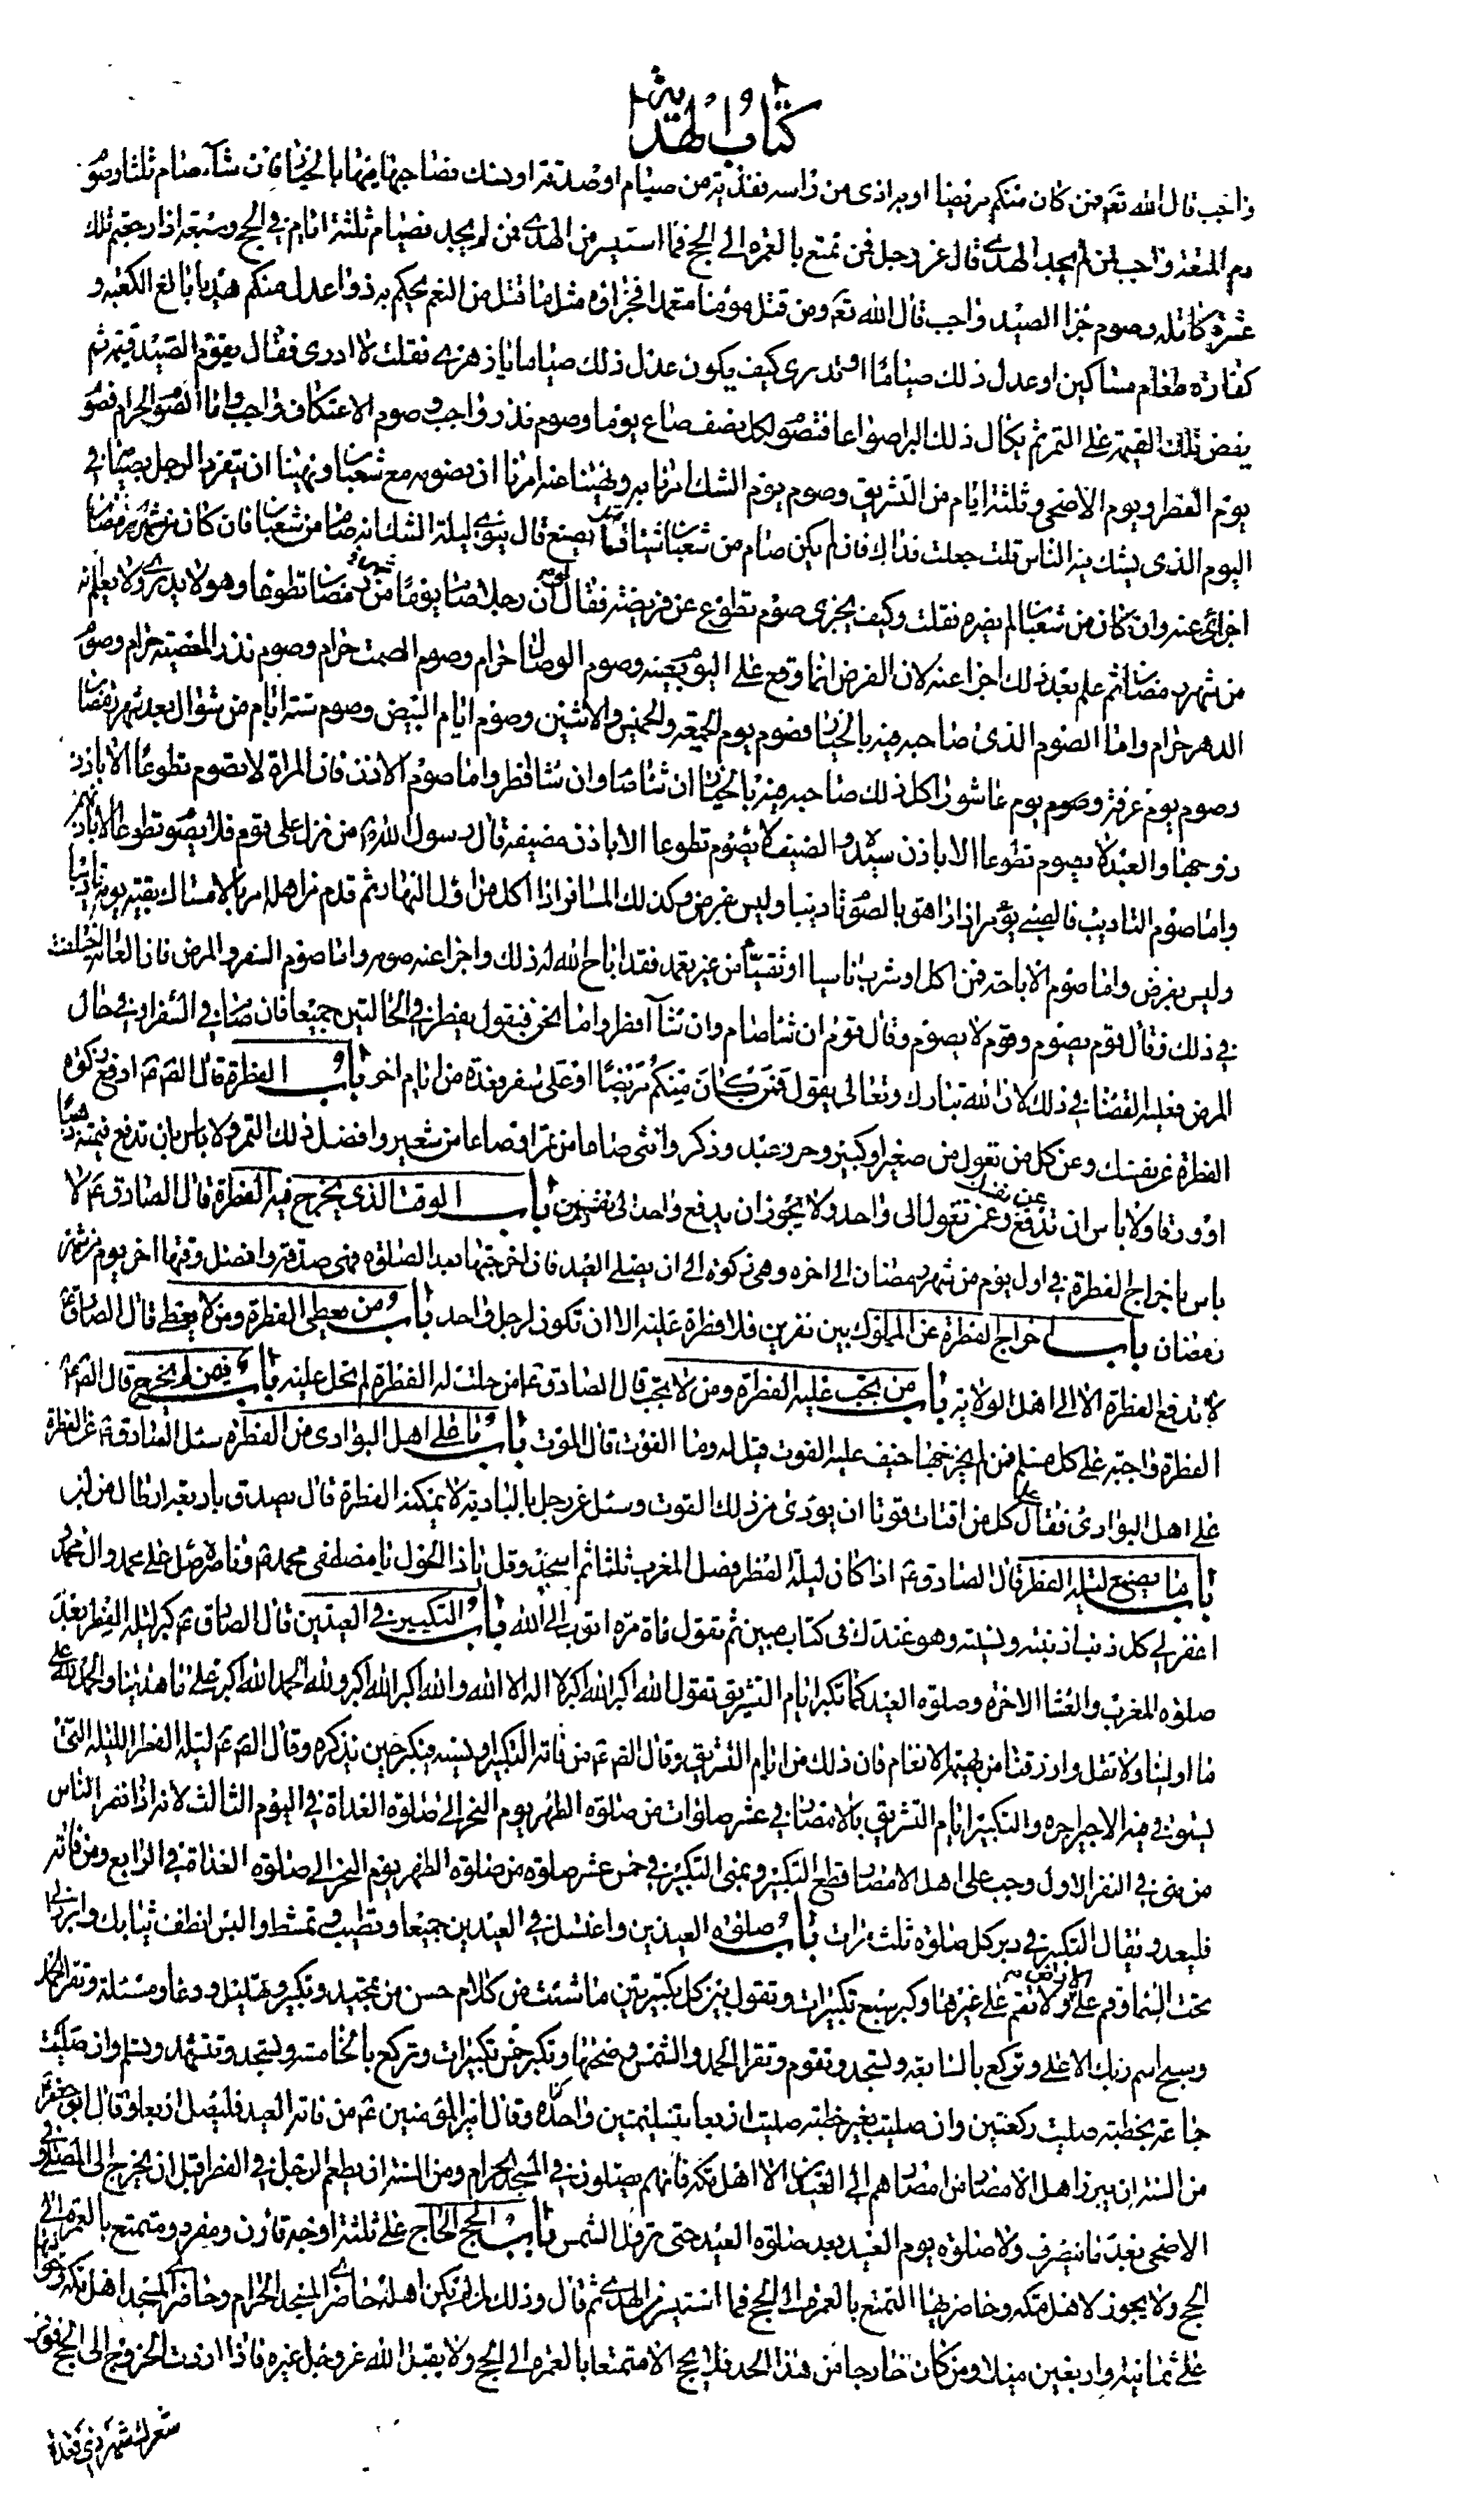 كتاب الهداية
واجب قال الله تعم فمن كان منكم مريضا او به اذى من راسه ففدية من صيام او صدقة او نسك فصاحبها فيها بالخيار فان شآء صام ثلثا وصو
دم المتعة واجب لمن لم يجد الهدى قال عز وجل فمن تمتع بالعمرة الى الحج فما استيسر من الهدى فمن لم يجد فصيام ثلثة ايام في الحج وسبعة اذا رجعتم تلك
عشرة كاملة وصوم جزا الصيد واجب قال الله تعم ومن قتله مؤمنا متعمدا فجزاؤه مثل ما قتل من النعم يحكم به ذوا عدل منكم هديا بالغ الكعبه و
كفارة طعام مساكين او عدل ذلك صياما او تدرى كيف يكون عدل ذلك صياما يا زهرى فقلت لا ادرى فقال يقوم الصيد قيمة ثم
يفض تلك القيمة على التمر ثم يكال ذلك البر اصواعا فتصو لكل نصف صاع يوما وصوم نذر واجب وصوم الاعتكاف واجب واما الصو الحرام فصو
يوم الفطر ويوم الاضحى وثلثة ايام من التشريق وصوم يوم الشك امرنا به ونهينا عنه امرنا ان نصومه مع شعبان ونهينا ان يتفرد الرجل بصيام في
اليوم الذى يشك فيه الناس قلت جعلت فداك فان لم يكن صام من شعبان شيئا فما يصنع قال ينوى ليلة الشك انه صام من شعبان فان كان من شهر رمضان
اجزائ عنه وان كان من شعبان لم يضره فقلت وكيف يجزى صوم تطوع عن فريضة فقال لو ان رجلا صام يوما من شهر رمضان تطوعا وهو لا يدرى ولا يعلم انه
من شهر رمضان ثم علم بعد ذلك اجزا عنه لان الفرض انما وقع على اليو بعينه وصوم الوصال حرام وصوم الصمت حرام وصوم نذر المعصية حرام وصو
الدهر حرام واما الصوم الذى صاحبه فيه بالخيار فصوم يوم الجمعة والخميس والاثنين وصوم ايام البيض وصوم ستة ايام من شوال بعد شهر رمضان
وصوم يوم عرفة وصوم يوم عاشورا كل ذلك صاحبه فيه بالخيار ان شا صام وان شا افطر واما صوم الاذن فان المراة لا تصوم تطوعا الا باذن
زوجها والعبد لا يصوم تطوعا الا باذن سيده والضيف لا يصوم تطوعا الا باذن مضيفه قال رسول الله ص من نزل على قوم فلا يصو تطوعا الا باذنهم
واما صوم التاديب فالصبى يؤمر اذا راهق بالصو تاديبا وليس بفرض وكذلك المسافر اذا اكل من اول النهار ثم قدم من اهله امر بالامساك بقية يومه تاديبا
وليس بفرض واما صوم الاباحة فمن اكل او شرب ناسيا او تقيأ من غير تعمد فقد اباح الله له ذلك واجزا عنه صومه واما صوم السفر والمرض فان العامة اختلفت
في ذلك فقال قوم يصوم وقوم لا يصوم وقال قوم ان شا صام وان شآ افطر واما نحن فنقول يفطر في الحالتين جميعا فان صام في السفر او في حال
المرض فعليه القضا في ذلك لان الله تبارك وتعالى يقول فمن كان منكم مريضا او على سفر فعدة من ايام اخر باب الفطرة قال الص ع ادفع زكوة
الفطرة عن نفسك وعن كل من تعول من صغير وكبير وحر وعبد وذكر وانثى صاعا من تمر او صاعا من شعير وافضل ذلك التمر ولا باس بان تدفع قيمته ذهبا
او ورقا ولا باس ان تدفع عن نفسك وعمن تعول الى واحد ولا يجوز ان يدفع واحد لى نفسين باب الوقت الذى يخرج فيه الفطرة قال الصادق ع لا
باس باخراج الفطرة في اول يوم من شهر رمضان الى اخره وهى زكوة الى ان يصلى العيد فان اخرجتها بعد الصلوة فهى صدقة وافضل وقتها اخر يوم من شهر
رمضان باب اخراج الفطرة عن المملوك بين نفرين فلا فطرة عليه الا ان تكون لرجل واحد باب من يعطى الفطرة ومن لا يعطى قال الصادق ع
لا تدفع الفطرة الا الى اهل الولاية باب من يجب عليه الفطرة ومن لا يجب قال الصادق ع من حلت له الفطرة لم تحل عليه باب فيمن لم يخرج قال الص ع
الفطرة واجبة على كل مسلم فمن لم يخرجها خيف عليه الفوت قيل له وما الفوت قال الموت باب ما على اهل البوادى من الفطرة سئل الصادق ع عن الفطرة
على اهل البوادى فقال على كل من اقتات قوتا ان يودى من ذلك القوت وسئل عن رجل بالبادية لا يمكنه الفطرة قال يصدق باربعة ارطال من لبن
باب ما يصنع ليلة الفطر قال الصادق ع اذا كان ليلة الفطر فصل المغرب ثلثا ثم اسجد وقل يا ذا الحول يا مصطفى محمد ص وناصره صل على محمد وال محمد
اغفر لى كل ذنب اذنبته ونسيته وهو عندك فى كتاب مبين ثم تقول ماة مرة اتوب الى الله باب التكبير في العيدين قال الصادق ع كبر ليلة الفطر بعد
صلوة المغرب والعشا الاخرة وصلوة العيد كما تكبر ايام التشريق تقول الله اكبر الله اكبر لا اله الا الله والله اكبر الله اكبر ولله الحمد الله اكبر على ما هدينا والحمد لله على
ما اولينا ولا تقل وارزقنا من بهيمة الانعام فان ذلك من ايام التشريق وقال الص ع من فاته التكبير او نسيه فيكبر حين يذكره وقال الص ع ليلة الفطر الليلة التى
يستوفى فيه الاجير اجره والتكبير ايام التشريق بالامصار في عشر صلوات من صلوة الظهر يوم النحر الى صلوة الغداة في اليوم الثالث لانه اذا نفر الناس
من منى في النفر الاول وجب على اهل الامصار قطع التكبير وبمنى التكبير في خمس عشر صلوة من صلوة الظهر يوم النحر الى صلوة الغداة في الرابع ومن فاته
فليعد ويقال التكبير في دبر كل صلوة ثلث مرات باب صلوة العيدين واغتسل في العيدين جميعا وتطيب وتمشط والبس انظف ثيابك وابرز الى
تحت السما وقم على الارض ولا تقم على غيرها وكبر سبع تكبيرات وتقول بين كل تكبيرتين ما شئت من كلام حسن من تمجيد وتكبير وتهليل ودعا ومسئلة وتقرا الحمد
وسبح اسم ربك الاعلى وتركع بالسابعة وتسجد وتقوم وتقرا الحمد والشمس وضحيها وتكبر خمس تكبيرات وتركع بالخامسة وتسجد وتتشهد وتسلم وان صليت
جماعة بخطبة صليت ركعتين وان صليت بغير خطبة صليت اربعا بتسليمتين واحدة وقال امير المؤمنين ع من فاته العيد فليصل اربعا وقال ابو جعفر ع
من السنة ان يبرز اهل الامصار من امصارهم الى العيدين الا اهل مكة فانهم يصلون في المسجد الحرام ومن السنة ان يطعم الرجل في الفطر قبل ان يخرج الى المصلى وفي
الاضحى بعد ما ينصرف ولا صلوة يوم العيد بعد صلوة العيد حتى تزول الشمس باب الحج الحاج على ثلثة اوجه قارن ومفرد ومتمتع بالعمرة الى
الحج ولا يجوز لاهل مكة وحاضريها التمتع بالعمرة الى الحج فما استيسر من الهدى ثم قال وذلك لمن لم يكن اهله حاضرى المسجد الحرام وحاضرى المسجد اهل مكة وحواليها
على ثمانية واربعين ميلا ومن كان خارجا من هذا الحد فلا يحج الا متمتعا بالعمرة الى الحج ولا يقبل الله عز وجل غيره فاذا اردت الخروج الى الحج فوفر
شعرك شهر ذى قعدة